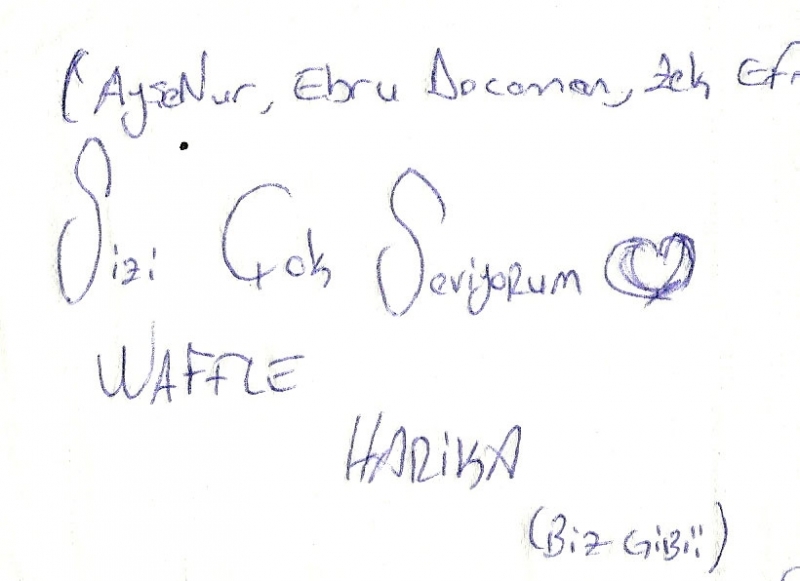 (AyşeNur, Ebru Docaman, Zek Efr
Sizi Çok Seviyorum
WAFFLE
HARiKA
(Biz GiBii)